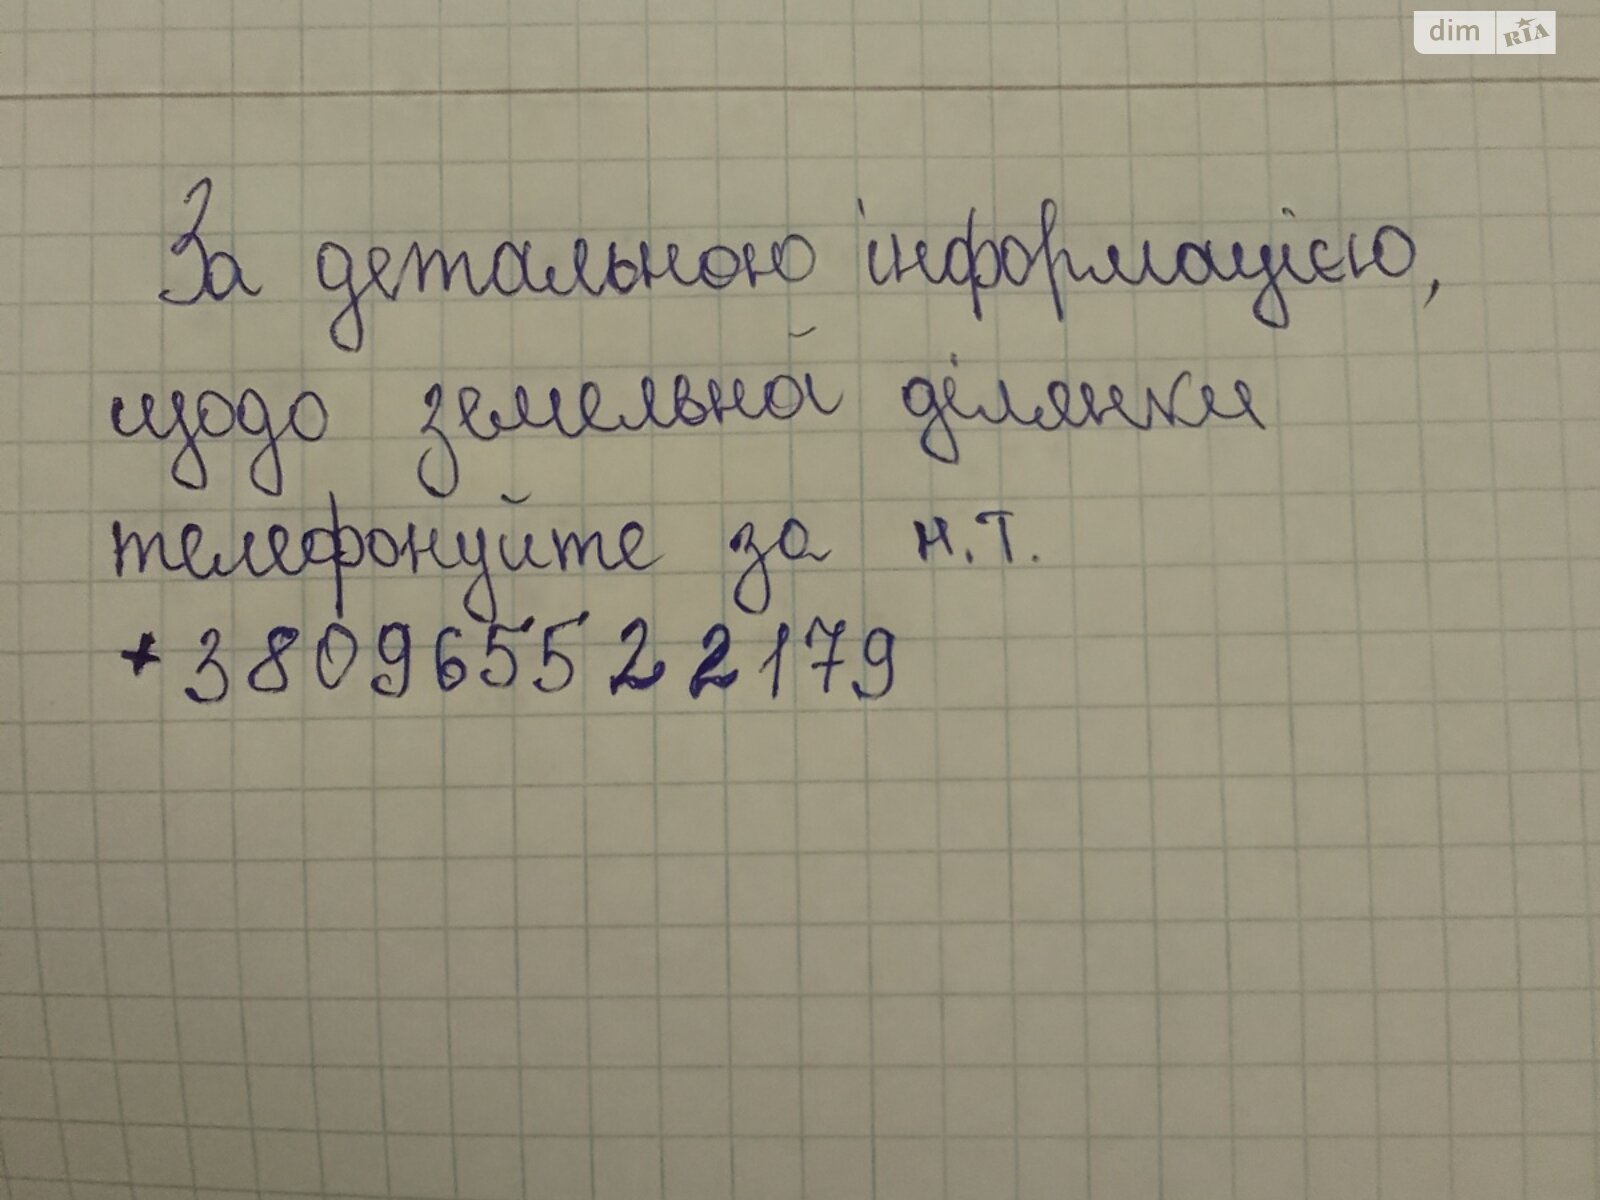 dim RIA
За детальною інформацією,
щодо земельной ділянки
телефонуйте за н.т.
+380965522179